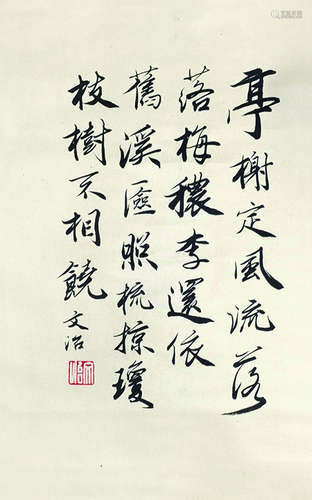 亭榭定風流落
落梅穠李還依
舊溪匳照梳掠瓊
枝樹不相饒 文治